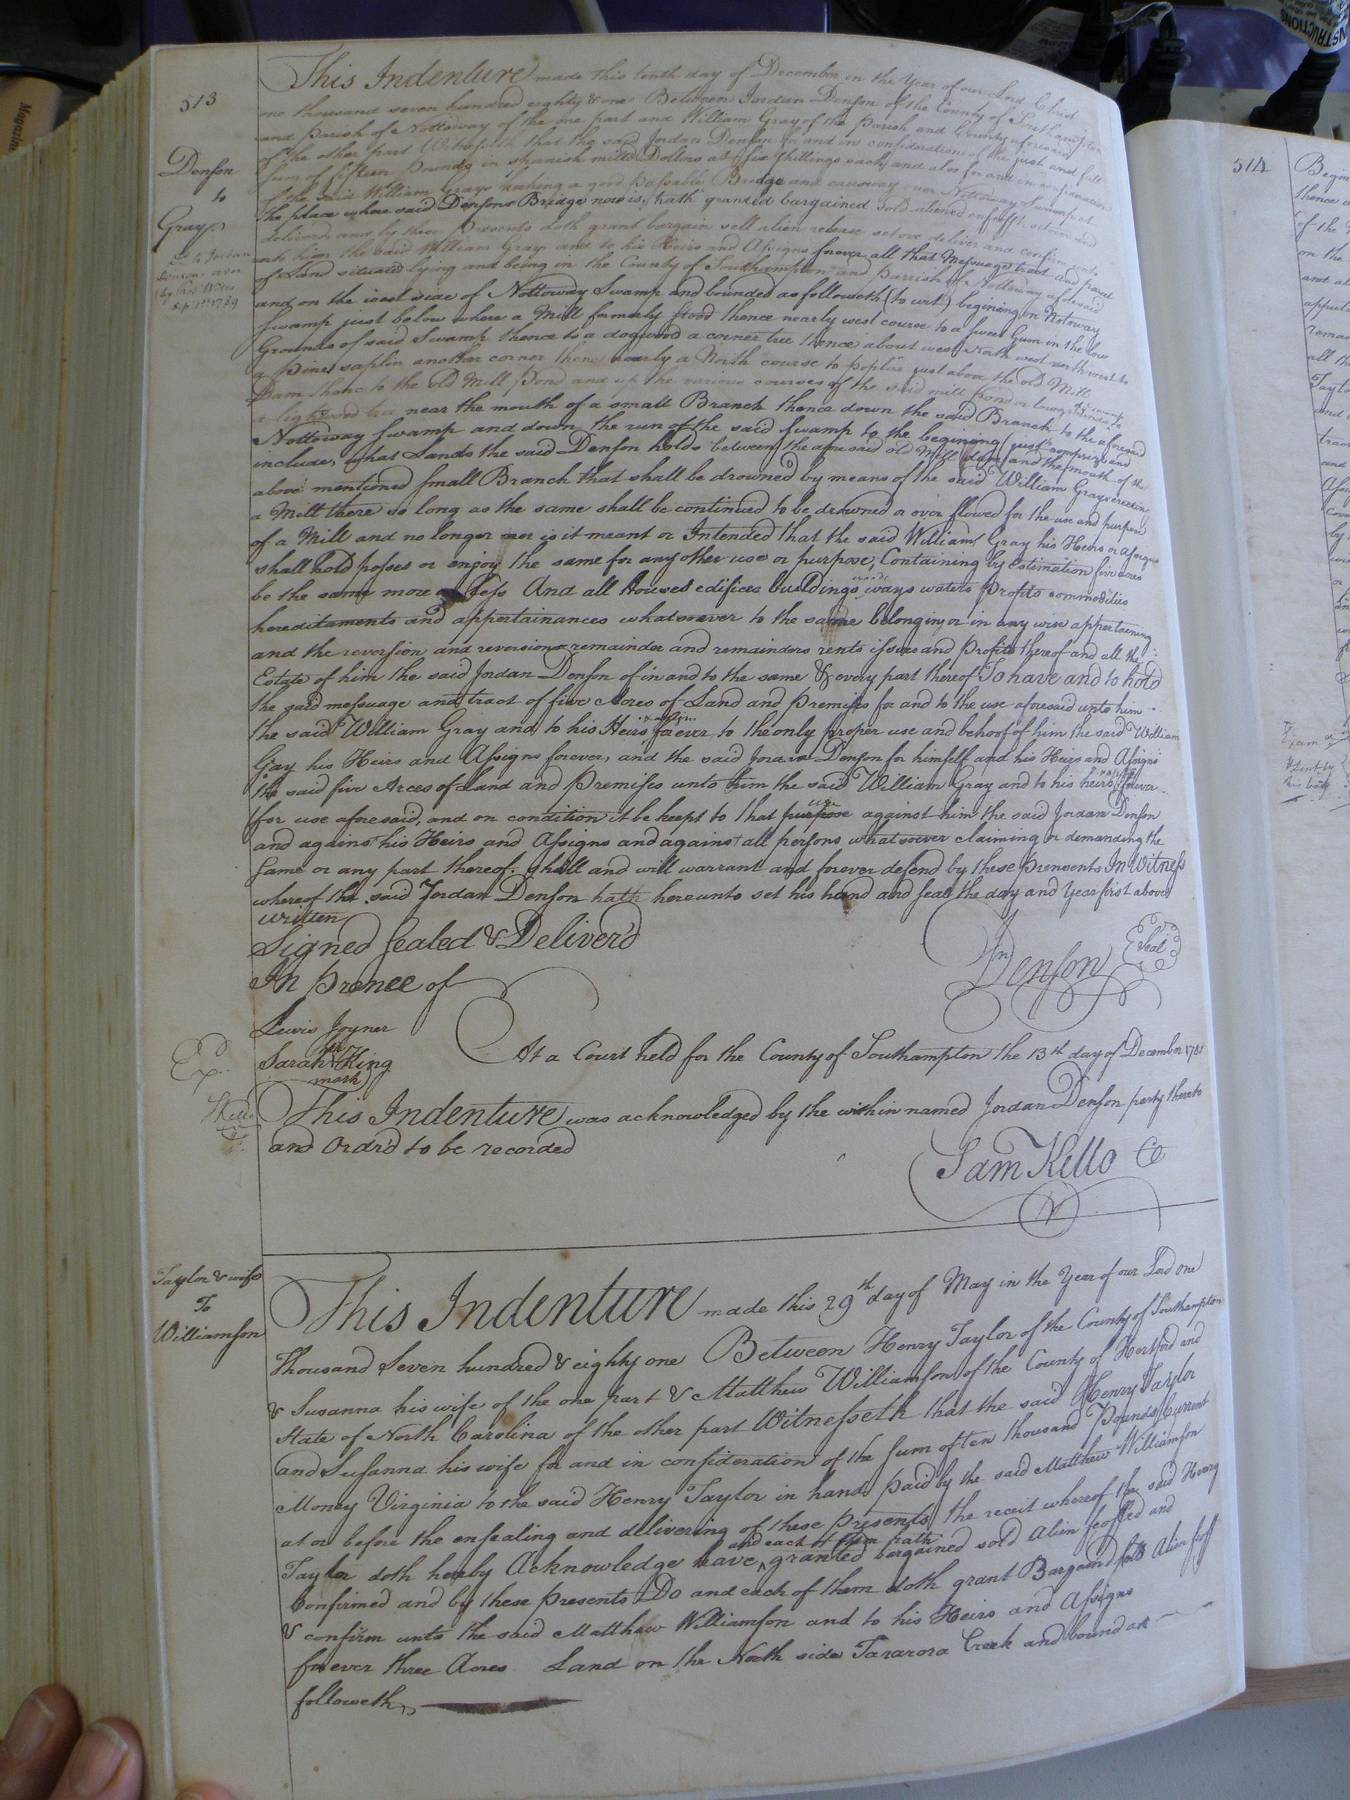 513
Denson
to
Gray
This Indenture made this tenth day of December in the Year of our Lord Christ
one thousand seven hundred eighty & one Between Jordan Denson of the County of Southampton
and Parish of Nottoway of the one part and William Gray of the Parish and County aforesaid
of the other part Witnesseth that the said Jordan Denson for and in consideration of the just and full
sum of fifteen Pounds in Spanish mill'd Dollars at six shillings each and also for and in consideration
of the said William Gray making a good passable Bridge and causway over Nottoway Swamp at
the place where said Densons Bridge now is, hath granted bargained sold aliened enfeofft
delivered and by these Presents doth grant bargain sell alien release deliver and confirm unto
him the said William Gray and to his Heirs and Assigns forever all that Messuage tract and parcel
of Land situated lying and being in the County of Southampton and Parrish of Nottoway aforesaid
and on the side of Nottoway Swamp and bounded as followeth (to wit) begining on Notoway
Swamp just below where a Mill formerly stood thence nearly west course to a sweet Gum in the low
Grounds of said Swamp thence to a dogwood a corner tree thence about west North west
a Pine saplin another corner thence nearly a North course to poplar just above the old Mill
Dam thence to the old Mill Pond and up the various courses of the said mill Pond
a lightwood tree near the mouth of a small Branch thence down the said Branch to the aforesaid
Nottoway Swamp and down the run of the said Swamp to the begining just comprize and
include, what Lands the said Denson holds between the afore said old Mill dam and the mouth of the
above mentioned small Branch that shall be drowned by means of the said William Grays erecting
a Mill there so long as the same shall be continued to be drowned or over flowed for the use and purpose
of a Mill and no longer nor is it meant or Intended that the said William Gray his Heirs or Assigns
shall hold posses or enjoy the same for any other use or purpose, Containing by Estimation five acres
be the same more or less And all Houses edifices buildings woods ways waters Profits commodities
hereditaments and appertainances whatsoever to the same belonging or in any wise appertaining
and the reversion and reversions remainder and remainders rents issues and Profits thereof and all the
Estate of him the said Jordan Denson of in and to the same & every part thereof To have and to hold
the said messuage and tract of five Acres of Land and Premises for and to the use aforesaid unto him
the said William Gray and to his Heirs forever to the only proper use and behoof of him the said William
Gray his Heirs and Assigns forever, and the said Jordan Denson for himself and his Heirs and Assigns
the said five Acres of Land and Premises unto him the said William Gray and to his heirs forever
for use aforesaid, and on condition it be keept to that purpose use against him the said Jordan Denson
and against his Heirs and Assigns and against all persons whatsoever claiming or demanding the
same or any part thereof. Shall and will warrant and forever defend by these Prensents In Witness
whereof the said Jordan Denson hath hereunto set his hand and seal the day and Year first above
written
Signed Sealed & Deliver'd
In prence of
Jn Denson Seal
Lewis Joyner
Sarah her King
mark
At a Court held for the County of Southampton the 13th day of December 1781
Ex.
This Indenture was acknowledged by the within named Jordan Denson party thereto
and Ordrd to be recorded
Sam Kello Cl
Taylor & wife
To
Williamson
This Indenture made this 29th day of May in the Year of our Lord one
Thousand Seven hundred & eighty one Between Henry Taylor of the County of Southampton
& Susanna his wife of the one part & Matthew Williamson of the County of Hertford and
State of North Carolina of the other part Witnesseth that the said Henry Taylor
and Susanna his wife for and in consideration of the sum of ten thousand Pounds Current
Money Virginia to the said Henry Taylor in hand paid by the said Matthew Williamson
at or before the ensealing and delivering of these presents the receit whereof the said Henry
Taylor doth hereby Acknowledge have and each of them hath granted bargained sold Alien feoffed and
Confirmed and by these presents Do and each of them doth grant Bargain sell Alien feoff
& confirm unto the said Matthew Williamson and to his Heirs and Assigns
forever three Acres Land on the North side Tararora Creek and bound as
followeth
514